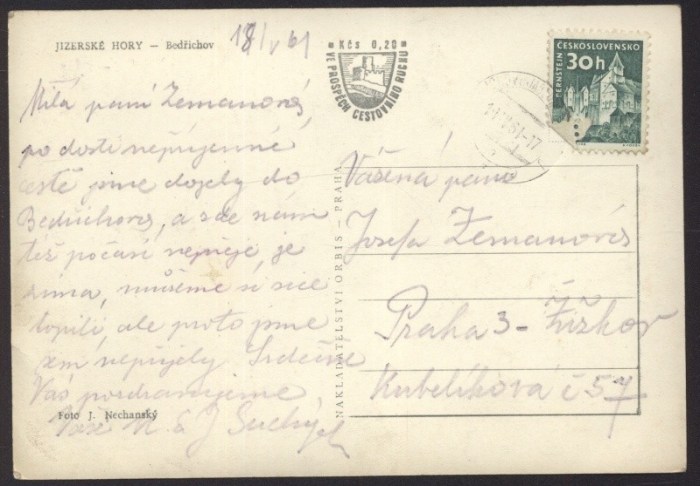 JIZERSKÉ HORY — Bedřichov
18/V 61
Kčs 0,20
VE PROSPĚCH CESTOVNÍHO RUCHU
ČESKOSLOVENSKO
30h
PERNŠTEJN
61-17
Milá paní Zemanová,
po dosti nepříjemné
cestě jsme dojely do
Bedřichova, a zde nám
též počasí nepřeje, je
zima, můžeme si sice
topiti, ale proto jsme
sem nepřijely Srdečně
Vás pozdravujeme
M. a J Suchých
Foto J. Nechanský
NAKLADATELSTVÍ ORBIS — PRAHA
Vážená paní
Josefa Zemanová
Praha 3 - Žižkov
Kubelíkova č 57